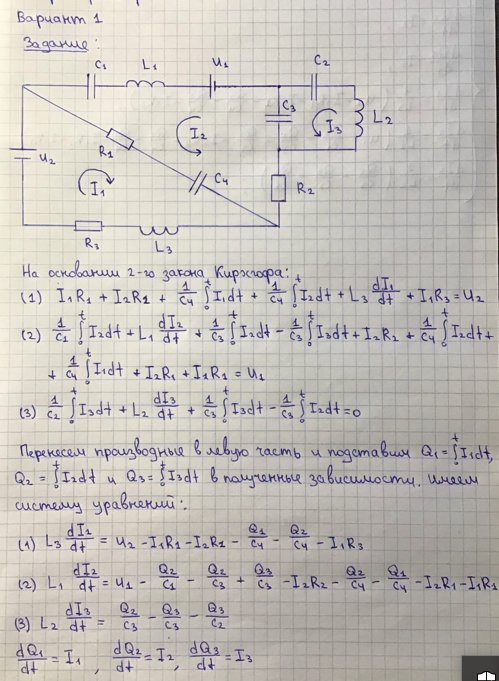 Вариант 1
Задание:
C1 L1 U1 C2
C3 L2
I2 I3
R1
U2
C4 R2
I1
R3 L3
На основании 2-го закона Кирхгофа:
(1) I1R1 + I2R1 + 1/C4 ∫₀ᵗ I1dt + 1/C4 ∫₀ᵗ I2dt + L3 dI1/dt + I1R3 = U2
(2) 1/C1 ∫₀ᵗ I2dt + L1 dI2/dt + 1/C3 ∫₀ᵗ I2dt - 1/C3 ∫₀ᵗ I3dt + I2R2 + 1/C4 ∫₀ᵗ I2dt +
+ 1/C4 ∫₀ᵗ I1dt + I2R1 + I1R1 = U1
(3) 1/C2 ∫₀ᵗ I3dt + L2 dI3/dt + 1/C3 ∫₀ᵗ I3dt - 1/C3 ∫₀ᵗ I2dt = 0
Перенесем производные в левую часть и подставим Q1 = ∫₀ᵗ I1dt,
Q2 = ∫₀ᵗ I2dt и Q3 = ∫₀ᵗ I3dt в полученные зависимости, имеем
систему уравнений:
(1) L3 dI2/dt = U2 - I1R1 - I2R1 - Q1/C4 - Q2/C4 - I1R3
(2) L1 dI2/dt = U1 - Q2/C1 - Q2/C3 + Q3/C3 - I2R2 - Q2/C4 - Q1/C4 - I2R1 - I1R1
(3) L2 dI3/dt = Q2/C3 - Q3/C3 - Q3/C2
dQ1/dt = I1 , dQ2/dt = I2 , dQ3/dt = I3